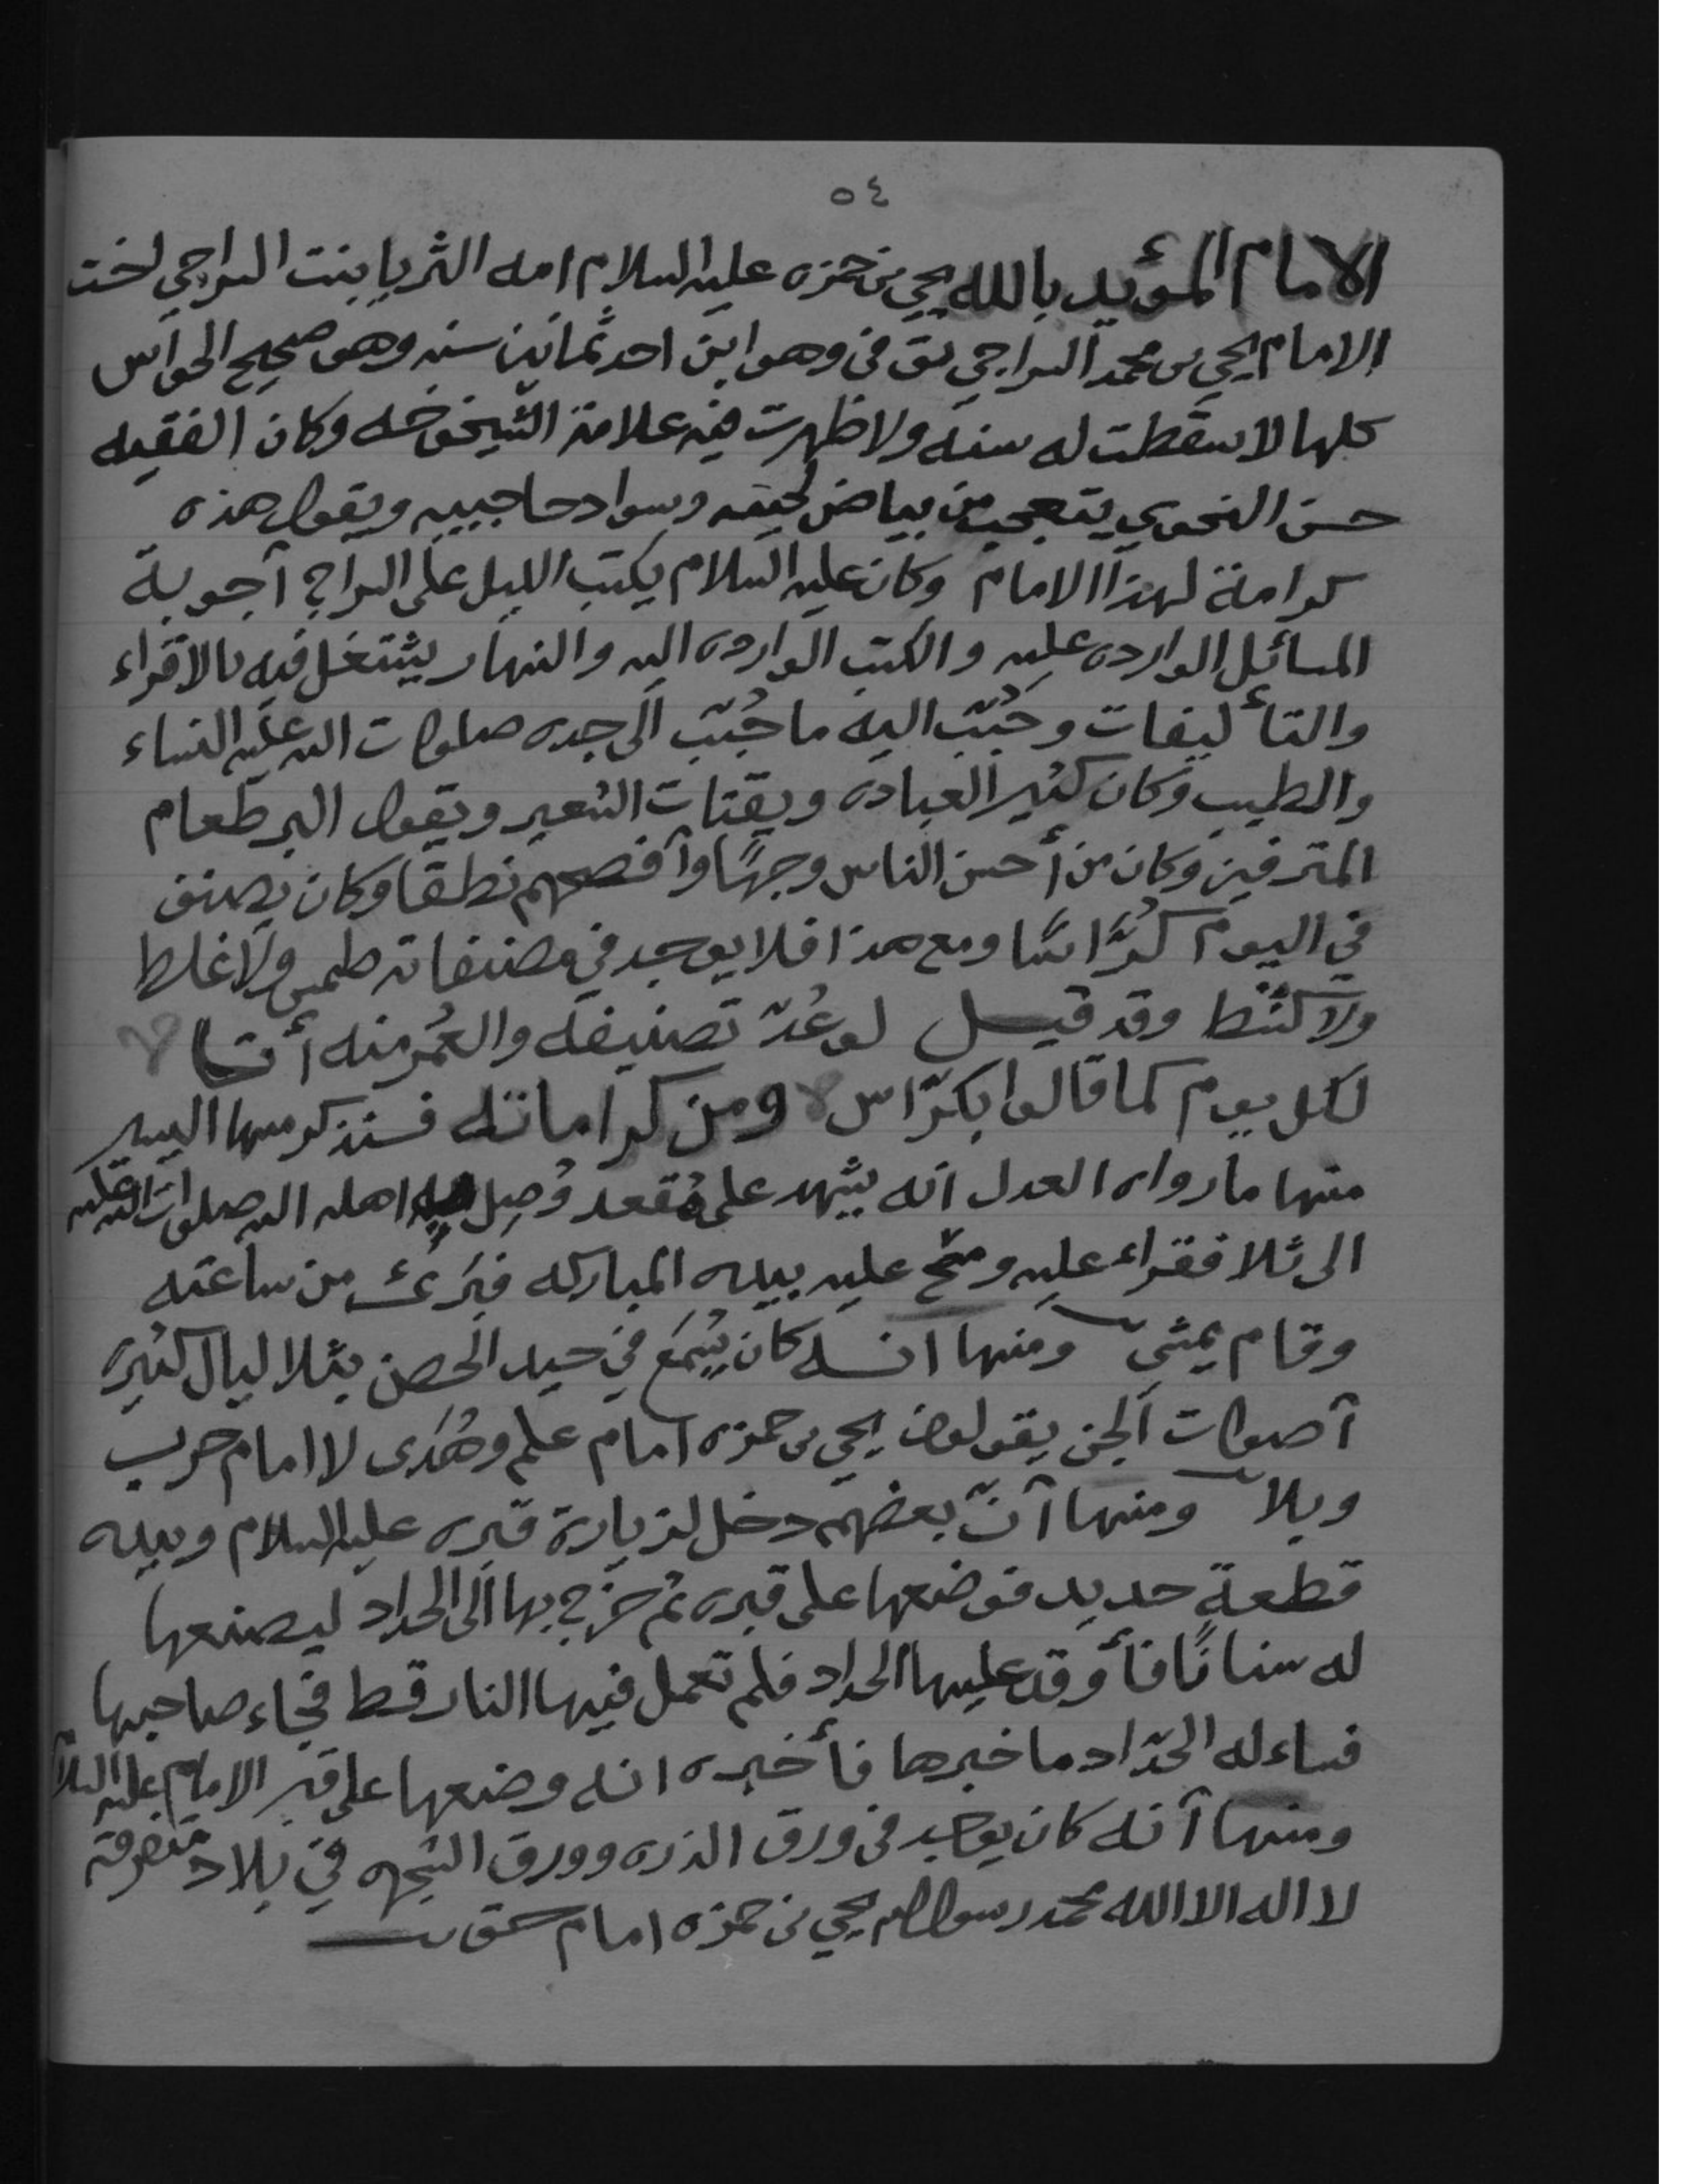 ٥٤
الامام المؤيد بالله يحي بن حمزه عليه السلام امه الثريا بنت السراجي اخت
الامام يحي بن محمد السراجي توفى وهو ابن احد ثمانين سنه وهو صحيح الحواس
كلها لا سقطت له سنه ولا ظهرت فيه علامة الشيخوخه وكان الفقيه
حسن النحوي يتعجب من بياض لحيته وسواد حاجبيه ويقول هذه
كرامة لهذا الامام وكان عليه السلام يكتب الليل على السراج أجوبة
المسائل الوارده عليه والكتب الوارده اليه والنهار يشتغل فيه بالاقراء
والتأليفات وحُبّب اليه ما حُبّب الى جده صلوات الله عليه النساء
والطيب وكان كثير العباده ويقتات الشعير ويقول البر طعام
المترفين وكان من أحسن الناس وجهًا وأفصحهم نطقا وكان يصنف
في اليوم كُرّاسًا ومع هذا فلا يوجد في مصنفاته طمس ولا غلط
ولا كشط وقد قيل لو عُدّ تصنيفه والعُمر منه أتى
لكل يوم كما قالوا بكرّاس ومن كراماته فسنذكر منها اليسير
منها ما رواه العدل انه يشهد على مُقعد وُصِل به اهله اليه صلوات الله عليه
الى ثلا فقراء عليه ومسح عليه بيده المباركه فبَرئ من ساعته
وقام يمشي ومنها انه كان يُسْمَع في حيد الحصن بثلا ليال كثيرة
أصوات الجن يقولون يحي بن حمزه امام علم وهُدى لا امام حرب
وبلا ومنها أنّ بعضهم دخل لزيارة قبره عليه السلام وبيده
قطعة حديد فوضعها على قبره ثم خرج بها الى الحداد ليصنعها
له سنانًا فأوقد عليها الحداد فلم تعمل فيها النار قط فجاء صاحبها
فساءله الحدّاد ما خبرها فأخبره انه وضعها على قبر الامام عليه السلام
ومنها أنه كان يوجد في ورق الذره وورق الشجره في بلاد متفرقة
لا اله الا الله محمد رسول الله يحي بن حمزه امام حق